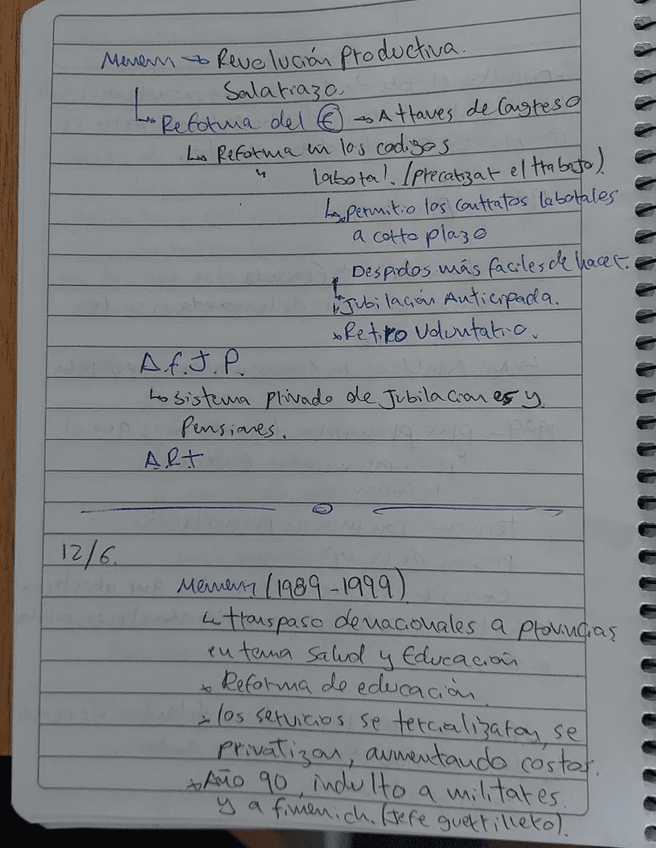 Menem → Revolución Productiva.
Salariazo.
↳ Reforma del Ⓔ → A traves de Congreso
↳ Reforma en los codigos
" laboral. (precarizar el trabajo)
↳ Permitio los contratos laborales
a corto plazo
Despidos más faciles de hacer.
Jubilación Anticipada.
Retiro Voluntario.
A.F.J.P.
↳ Sistema privado de Jubilaciones y
Pensiones.
ART
12/6.
Menem (1989-1999)
↳ transpaso de nacionales a provincias
en tema Salud y Educación
Reforma de educación
los servicios se tercializaron, se
privatizan, aumentando costos.
Año 90, indulto a militares
y a fimenich. (Jefe guerrillero).